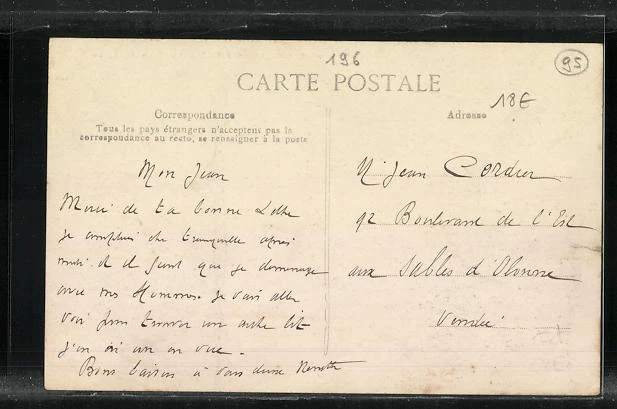 196
95
CARTE POSTALE
18€
Correspondance
Tous les pays étrangers n'acceptent pas la
correspondance au recto, se renseigner à la poste
Adresse
Mon Jean
Merci de ta bonne Lettre
je tranquille après
midi et il faut que je demenage
avec mes Hommes. je vais aller
voir pour trouver un autre lit
j'en ai un en vue.
Bons baisers à vous deux
Mr Jean Cordier
92 Boulevard de l'Est
aux Sables d'Olonne
Vendée